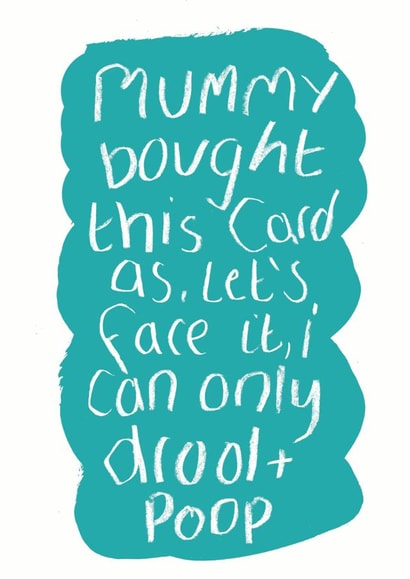 MUMMY
bought
this Card
as, Let's
face it, i
Can only
drool+
POOP